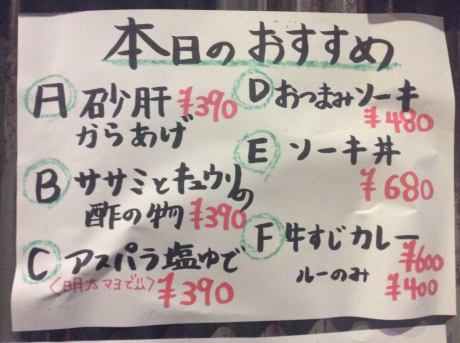 本日のおすすめ
A 砂肝 ¥390
からあげ
B ササミとキュウリの
酢の物 ¥390
C アスパラ塩ゆで
〈明太マヨで!!〉 ¥390
D おつまみソーキ
¥480
E ソーキ丼
¥680
F 牛すじカレー
¥600
ルーのみ ¥400